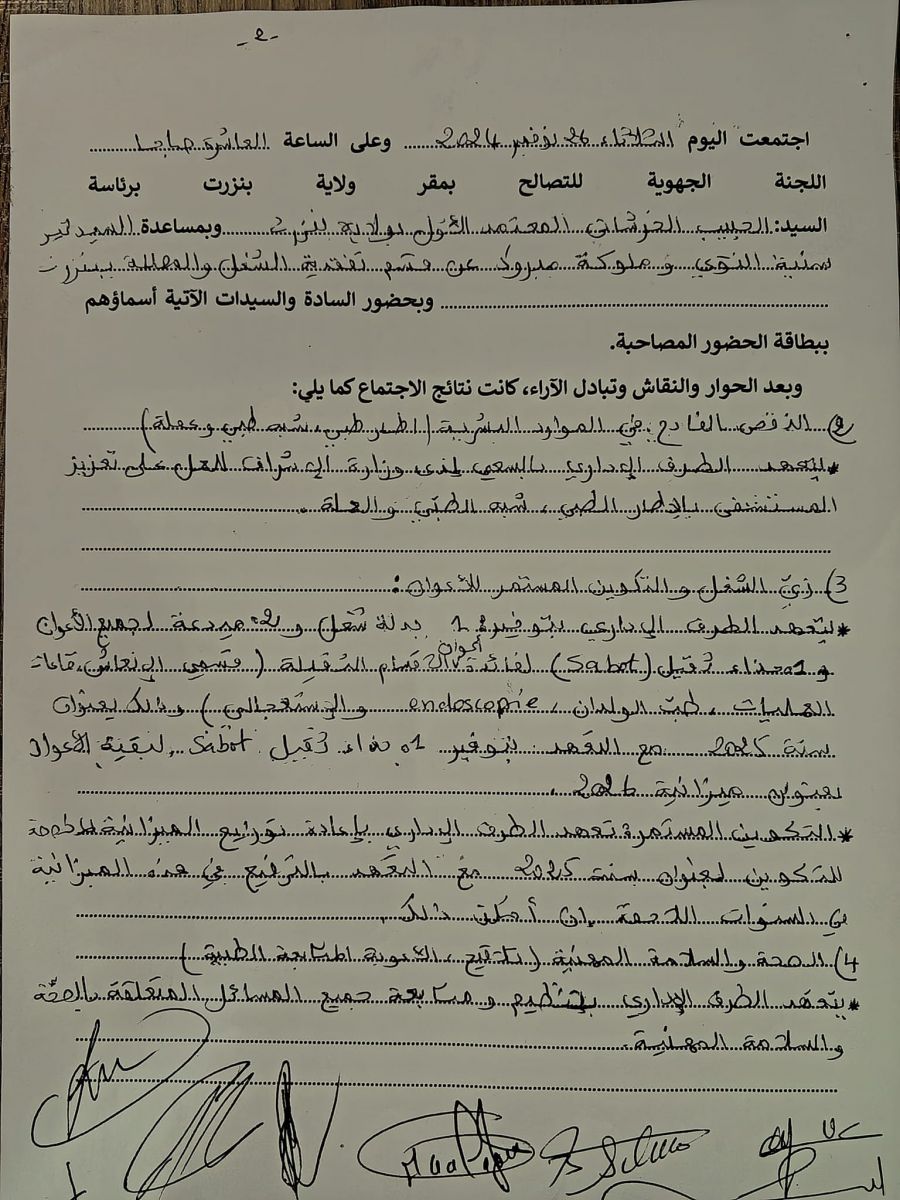 -2-
اجتمعت اليوم الثلاثاء 26 نوفمبر 2024 وعلى الساعة العاشرة صباحا
اللجنة الجهوية للتصالح بمقر ولاية بنزرت برئاسة
السيد: الحبيب الحرشاني المعتمد الأول بولاية بنزرت وبمساعدة السيدتين
سنية النوّي و ملوكة مبروك عن قسم تفقدية الشغل والمصالحة ببنزرت
وبحضور السادة والسيدات الآتية أسماؤهم
ببطاقة الحضور المصاحبة.
وبعد الحوار والنقاش وتبادل الآراء، كانت نتائج الاجتماع كما يلي:
2) النقص الفادح في الموارد البشرية (إطار طبي، شبه طبي وعملة)
* يتعهد الطرف الإداري بالسعي لدى وزارة الإشراف للعمل على تعزيز
المستشفى بالإطار الطبي، شبه الطبّي والعملة.
3) زيّ الشغل والتكوين المستمر للأعوان:
* يتعهد الطرف الإداري بتوفير 1 بدلة شغل و 2 ميدعة لجميع الأعوان
و 1 حذاء ثقيل (Sabot) لفائدة أعوان الأقسام الثقيلة (قسمي الإنعاش، قاعات
العمليات، طبّ الولدان، endoscopie والإستعجالي) وذلك بعنوان
سنة 2025 مع التعهد بتوفير 01 حذاء ثقيل Sabot لبقية الأعوان
بعنوان ميزانية 2026.
* التكوين المستمر: تعهد الطرف الإداري بإعادة توزيع الميزانية المخصصة
للتكوين لعنوان سنة 2025 مع التعّهد بالترفيع في هذه الميزانية
في السنوات اللاحقة إن أمكن ذلك.
4) الصحة والسلامة المهنيّة (تلاقيح، الأدوية المتابعة الطبية)
* يتعهد الطرف الإداري بتنظيم ومتابعة جميع المسائل المتعلقة بالصحّة
والسلامة المهنية.